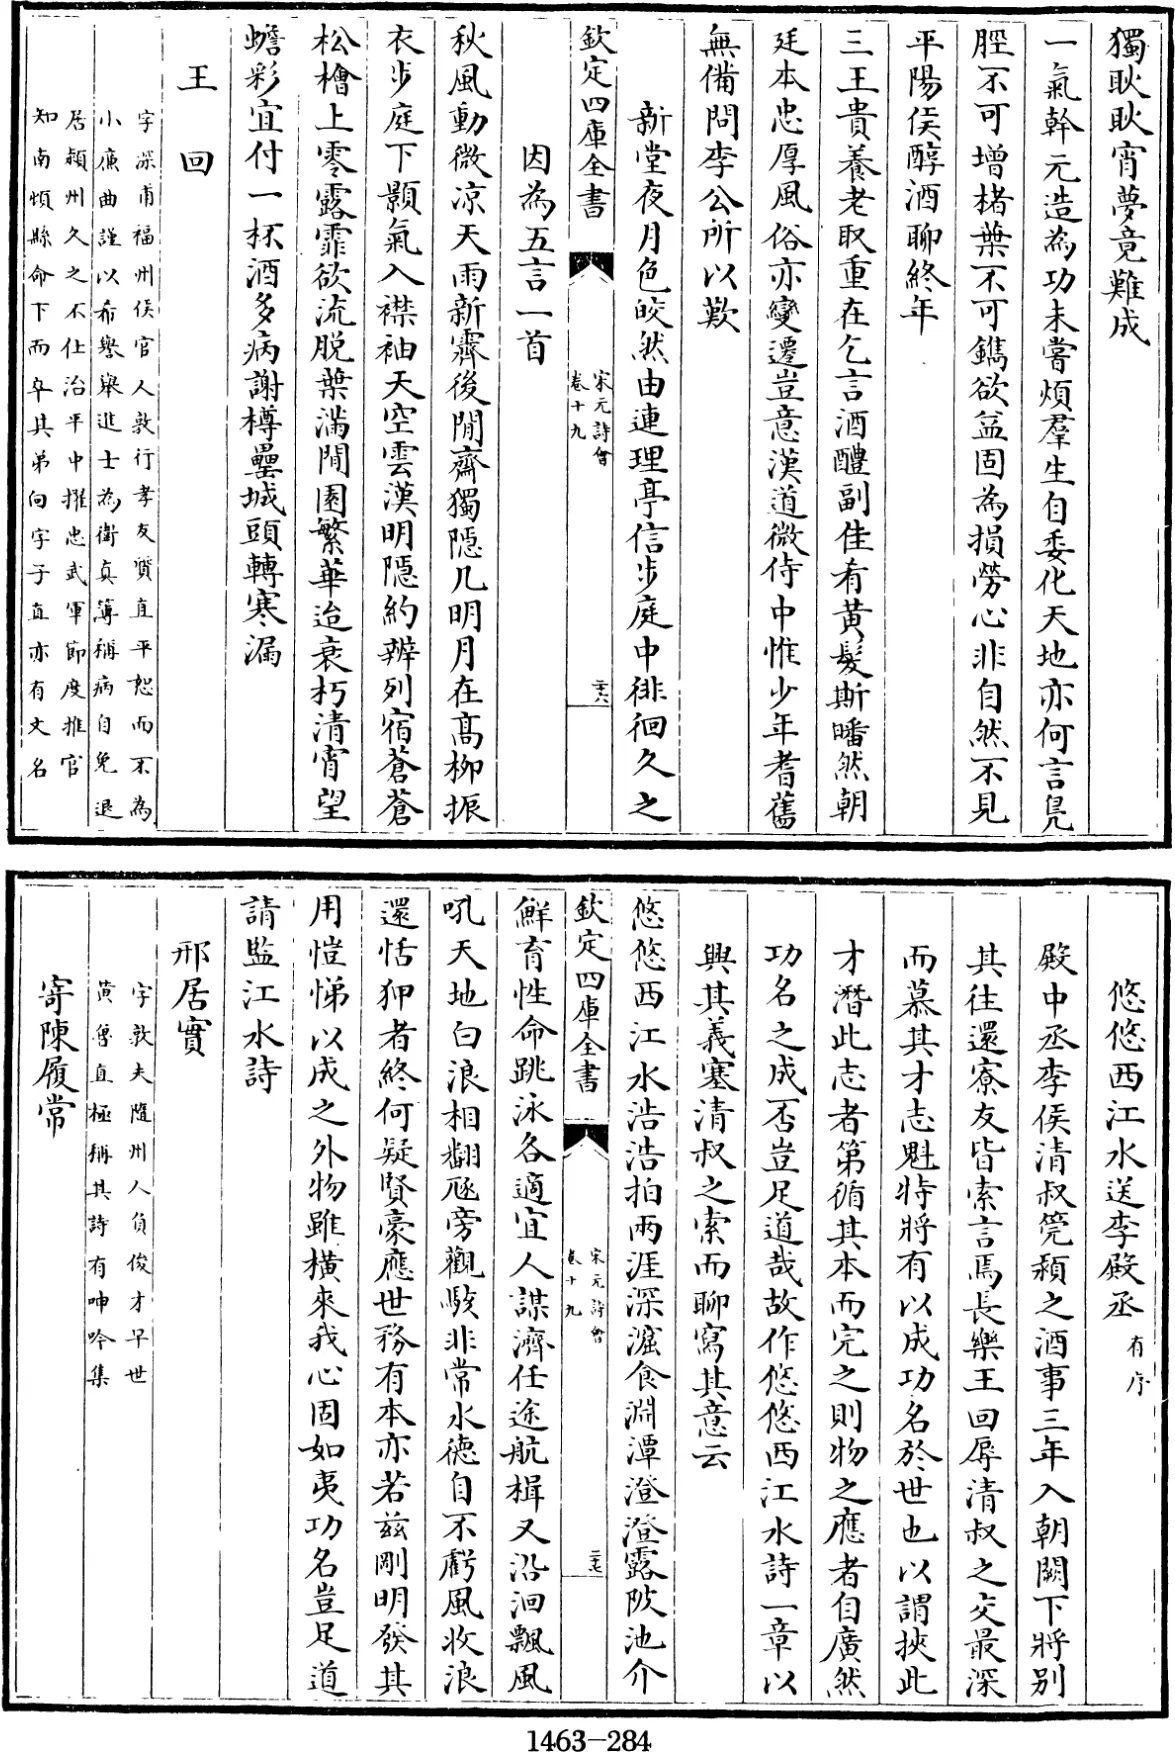 獨耿耿宵夢竟難成
一氣幹元造為功未嘗煩羣生自委化天地亦何言鳬
脛不可增楮葉不可鐫欲益固為損勞心非自然不見
平陽侯醇酒聊終年
三王貴養老取重在乞言酒醴副佳肴黄髮斯皤然朝
廷本忠厚風俗亦變遷豈意漢道微侍中惟少年耆舊
無備問李公所以歎
新堂夜月色皎然由連理亭信步庭中徘徊久之
欽定四庫全書
宋元詩會
卷十九
二十六
因為五言一首
秋風動微凉天雨新霽後閒齋獨隱几明月在髙柳振
衣步庭下顥氣入襟袖天空雲漢明隱約辨列宿蒼蒼
松檜上零露霏欲流脱葉滿閒園繁華迨衰朽清宵望
蟾彩宜付一杯酒多病謝樽罍城頭轉寒漏
王回
字深甫福州侯官人敦行孝友質直平恕而不為
小廉曲謹以希譽舉進士為衛真簿稱病自免退
居潁州久之不仕治平中擢忠武軍節度推官
知南頓縣命下而卒其弟向字子直亦有文名
悠悠西江水送李殿丞
有序
殿中丞李侯清叔筦潁之酒事三年入朝闕下將别
其往還寮友皆索言焉長樂王回辱清叔之交最深
而慕其才志魁特將有以成功名於世也以謂挾此
才潛此志者第循其本而完之則物之應者自廣然
功名之成否豈足道哉故作悠悠西江水詩一章以
興其義塞清叔之索而聊寫其意云
悠悠西江水浩浩拍兩涯深瀧食淵潭澄澄露陂池介
欽定四庫全書
宋元詩會
卷十九
二十七
鮮育性命跳泳各適宜人謀濟任途航楫又沿洄飄風
吼天地白浪相翻豗旁觀駭非常水德自不虧風收浪
還恬狎者終何疑賢豪應世務有本亦若兹剛明發其
用愷悌以成之外物雖橫來我心固如夷功名豈足道
請監江水詩
邢居實
字敦夫隨州人負俊才早世
黄魯直極稱其詩有呻吟集
寄陳履常
1463-284